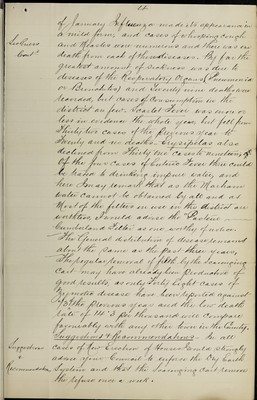 of January Influenza made its appearance in
a mild form, and cases of whooping cough
and Measles were numerous and there was one
death from each of these diseases. By far the
greatest amount of sickness was due to
diseases of the Respiratory Organs (Pneumonia
or Bronchitis) and Twenty nine deaths were
recorded, but cases of Consumption in the
district are few. Scarlet Fever was more or
less in evidence the whole year but fell from
Thirty two cases of the previous year to
Twenty and no deaths. Erysipelas also
declined from Thirty two cases to
Of the four cases of Enteric Fever three could
be traced to drinking impure water, and
here I may remark that as the
water cannot be obtained by all and as
Most of the filters in use in the district are
worthless, I would advise the Pasteur
Filter as one worthy of notice
The General distribution of disease remained
about the same as the past three years,
The regular removal of filth by the Scavenging
Cart may have already been productive of
good results, as only forty eight cases of
Infectious diseases have been reported against
the previous year and the low death
rate of per thousand will compare
favourably with any other town in the County.
Suggestions & Recommendations
Suggestions & Recommendations. In all
cases of New Erection of Houses I would strongly
advise your Council to enforce the Dry Earth
System and that the Scavenging Cart remove
the refuse once a week.